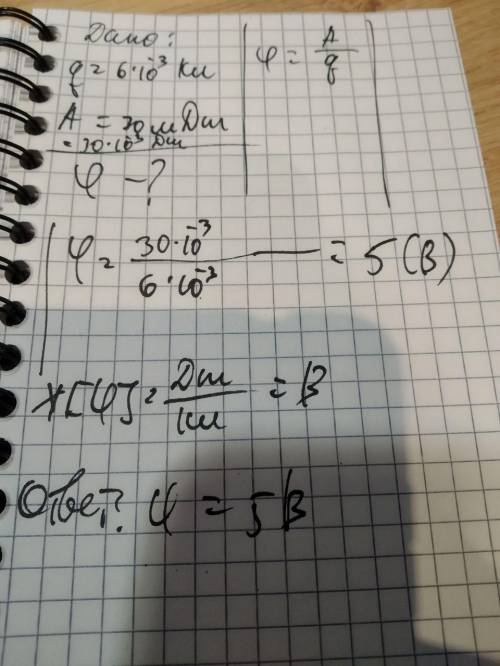 Дано:
q = 6·10⁻³ Кл
A = 30 мДж
= 30·10⁻³ Дж
φ - ?
φ = A/q
φ = 30·10⁻³ / 6·10⁻³ = 5 (В)
*[φ] = Дж/Кл = В
Ответ: φ = 5 В